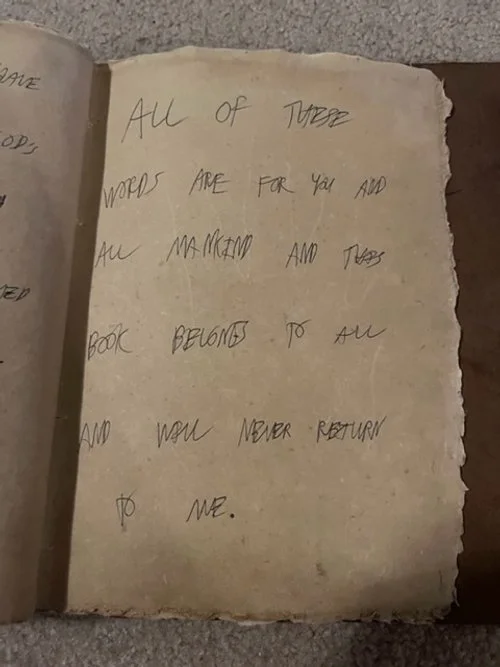 RAVE
ODs
TED
ALL OF THESE
WORDS ARE FOR YOU AND
ALL MANKIND AND THIS
BOOK BELONGS TO ALL
AND WILL NEVER RETURN
TO ME.